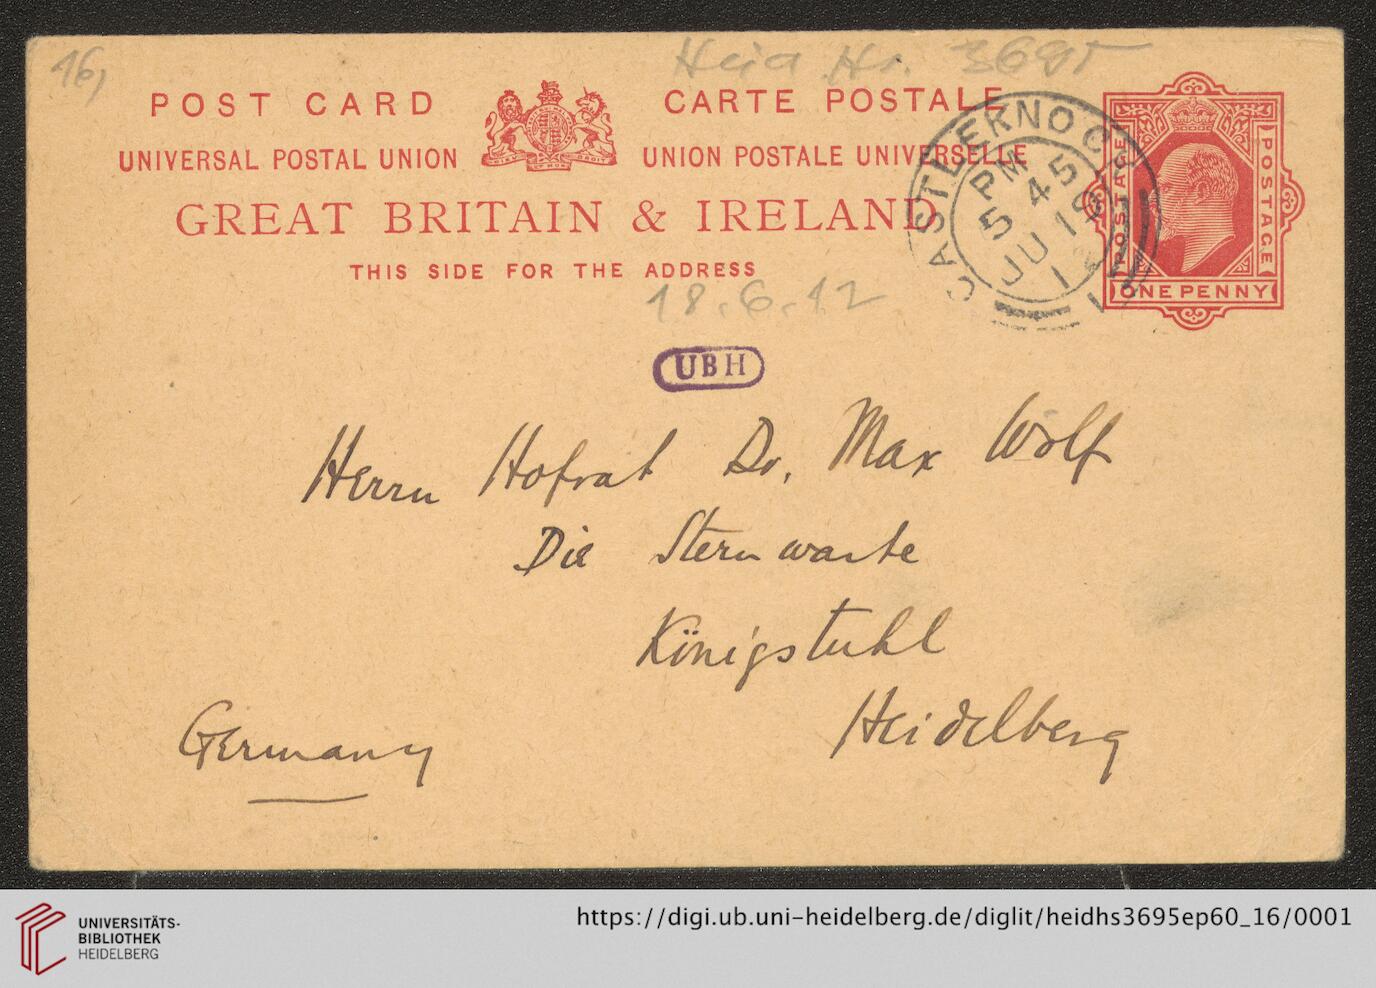 16)
Heid. Hs. 3695
POST CARD
CARTE POSTALE
UNIVERSAL POSTAL UNION
UNION POSTALE UNIVERSELLE
GREAT BRITAIN & IRELAND
THIS SIDE FOR THE ADDRESS
CASTLEKNOCK
PM
5 45
JU 19
POSTAGE
POSTAGE
ONE PENNY
18.6.12
UBH
Herrn Hofrat Dr. Max Wolf
Die Sternwarte
Königstuhl
Heidelberg
Germany
UNIVERSITÄTS-
BIBLIOTHEK
HEIDELBERG
https://digi.ub.uni-heidelberg.de/diglit/heidhs3695ep60_16/0001